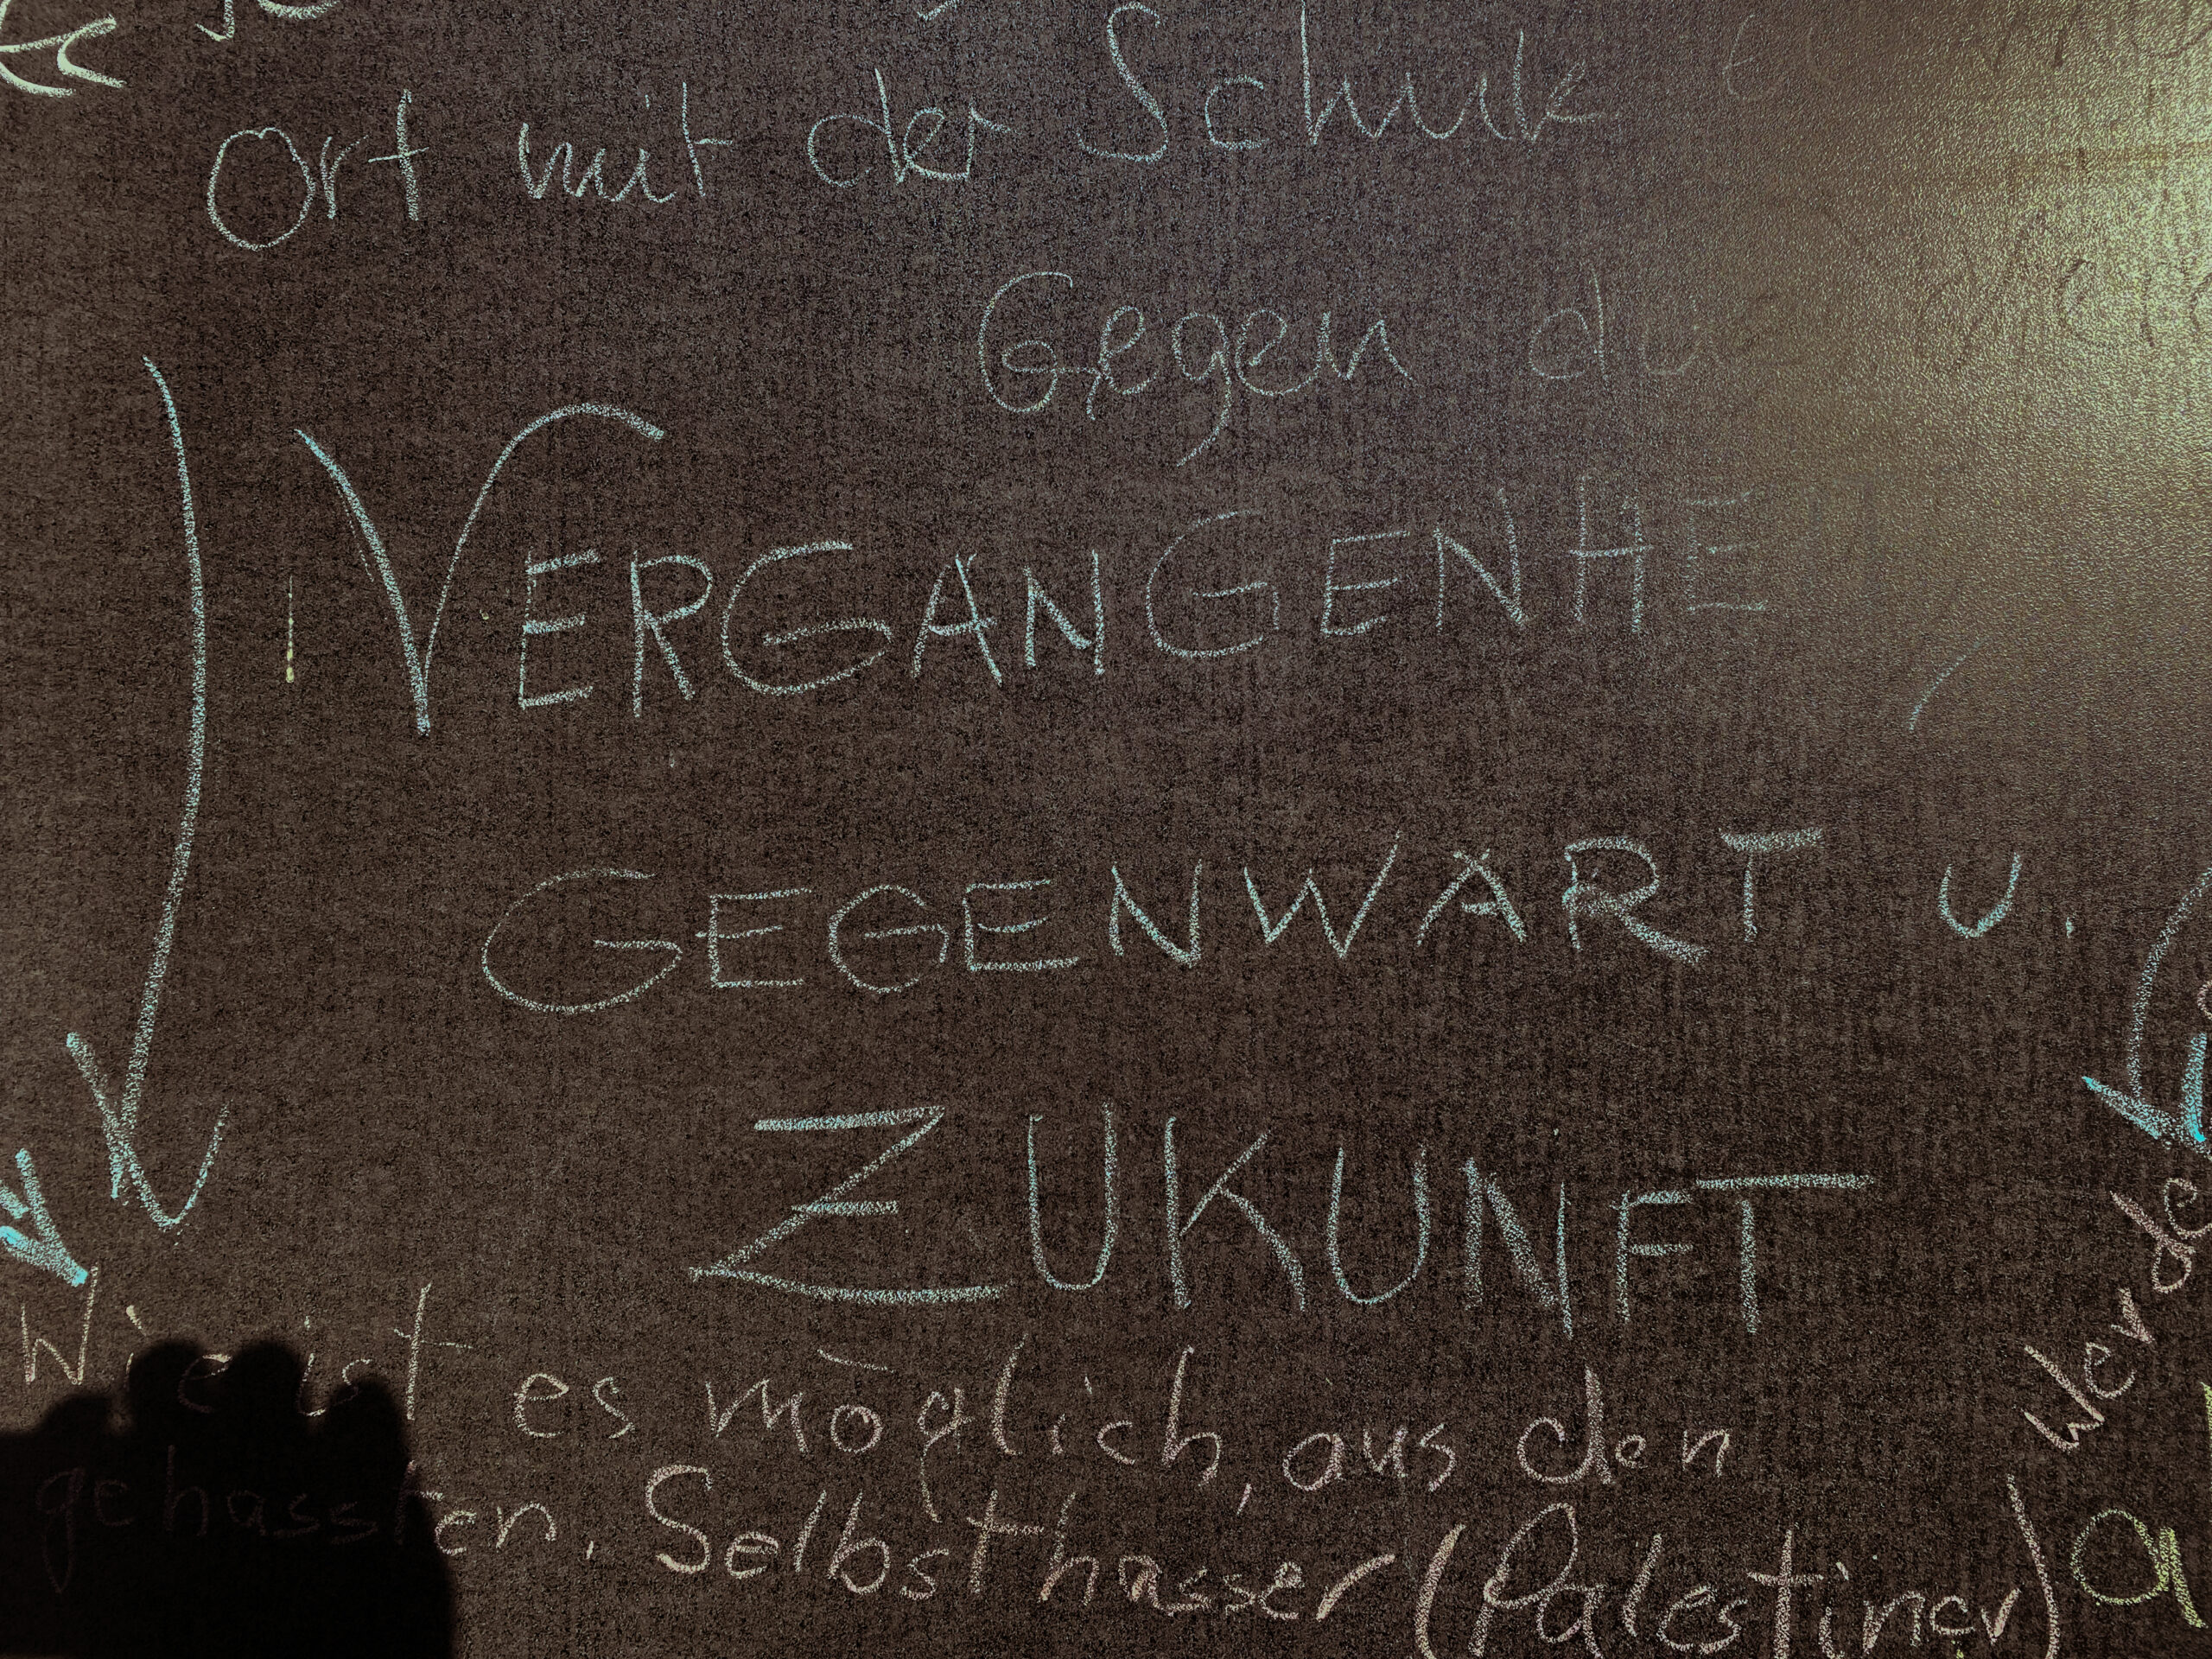 Ort mit der Schule
Gegen die
VERGANGENHE
GEGENWART u.
ZUKUNFT
Wie ist es möglich, aus den
gehassten, Selbsthasser (Palestiner)
werde
a